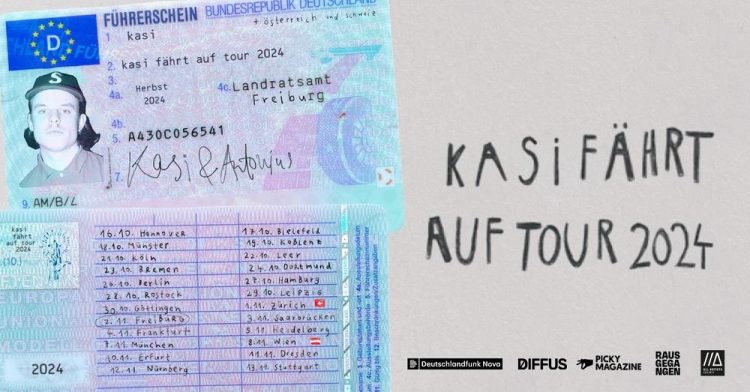 FÜHRERSCHEIN BUNDESREPUBLIK DEUTSCHLAND
+ österreich und schweiz
D
1. kasi
2. kasi fährt auf tour 2024
3.
4a. Herbst 2024
4c. Landratsamt Freiburg
4b.
5. A430C056541
7. Kasi & Antonius
9. AM/B/L
kasi
fährt
auf tour
2024
(10.)
16.10. Hannover
17.10. Bielefeld
18.10. Münster
19.10. Koblenz
21.10. Köln
22.10. Leer
23.10. Bremen
24.10. Dortmund
26.10. Berlin
27.10. Hamburg
28.10. Rostock
29.10. Leipzig
30.10. Göttingen
1.11. Zürich
2.11. Freiburg
3.11. Saarbrücken
4.11. Frankfurt
5.11. Heidelberg
7.11. München
8.11. Wien
10.11. Erfurt
11.11. Dresden
12.11. Nürnberg
13.11. Stuttgart
2024
KASI FÄHRT
AUF TOUR 2024
Deutschlandfunk Nova
DIFFUS
PICKY
MAGAZINE
RAUS
GEGA
NGEN